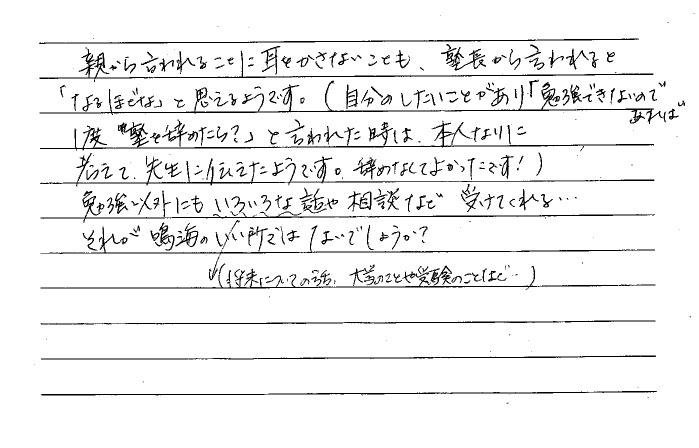 親から言われることに耳をかさないことも、塾長から言われると
「なるほどな」と思えるようです。(自分のしたいことがあり「勉強できないので
あれば
1度塾を辞めたら?」と言われた時は、本人なりに
考えて、先生に伝えたようです。辞めなくてよかったです!)
勉強以外にもいろいろな話や相談など受けてくれる…
それが鳴海のいい所ではないでしょうか?
(将来についての話、大学のことや受験のことなど…)